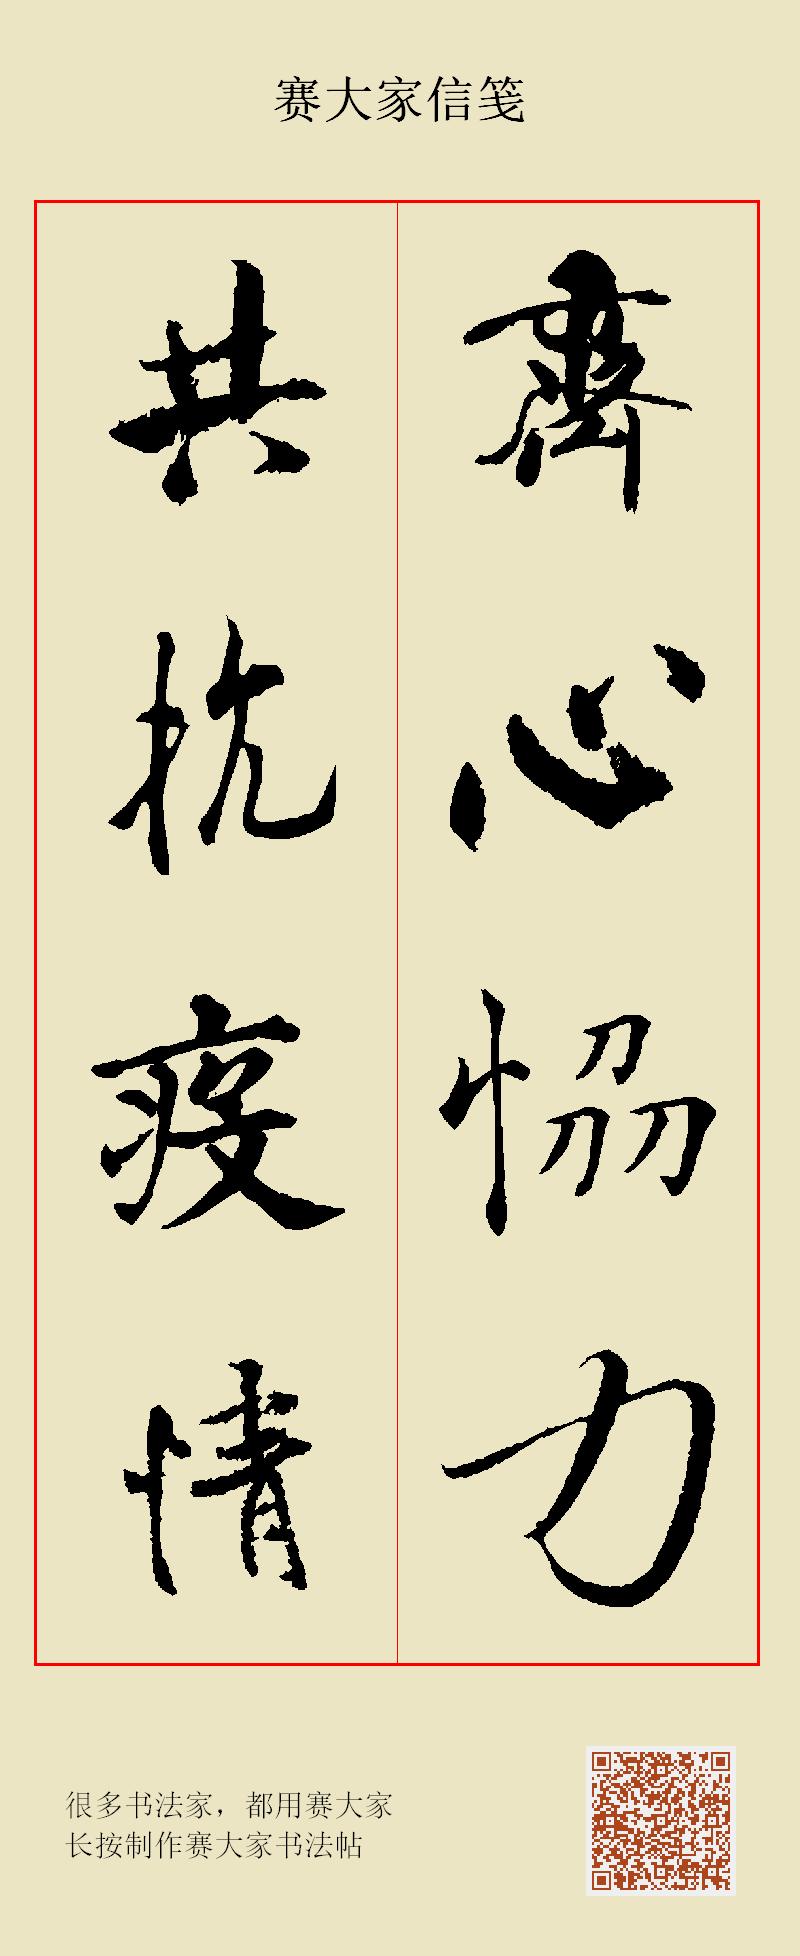 赛大家信笺
齊心恊力
共抗疫情
很多书法家，都用赛大家
长按制作赛大家书法帖